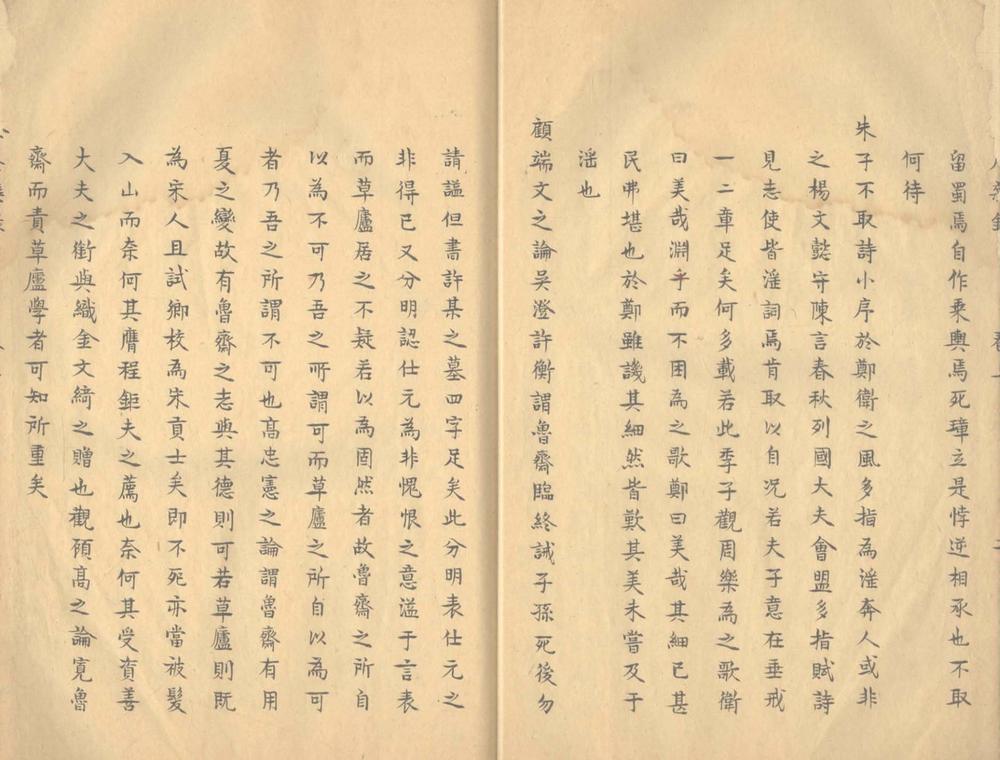 留蜀焉自作乘輿焉死璋立是悖逆相承也不取
何待
朱子不取詩小序於鄭衛之風多指為淫奔人或非
之楊文懿守陳言春秋列國大夫會盟多指賦詩
見志使皆淫詞焉肯取以自況若夫子意在垂戒
一二章足矣何多載若此季子觀周樂為之歌衛
曰美哉淵乎而不困為之歌鄭曰美哉其細已甚
民弗堪也於鄭雖譏其細然皆歎其美未嘗及于
淫也
顧端文之論吳澄許衡謂魯齋臨終誡子孫死後勿
請謚但書許某之墓四字足矣此分明表仕元之
非得已又分明認仕元為非愧恨之意溢于言表
而草廬居之不疑若以為固然者故魯齋之所自
以為不可乃吾之所謂可而草廬之所自以為可
者乃吾之所謂不可也高忠憲之論謂魯齋有用
夏之變故有魯齋之志與其德則可若草廬則既
為宋人且試鄉校為宋貢士矣即不死亦當被髮
入山而奈何其膺程鉅夫之薦也奈何其受資善
大夫之銜與織金文綺之贈也觀顧高之論寬魯
齋而責草廬學者可知所重矣